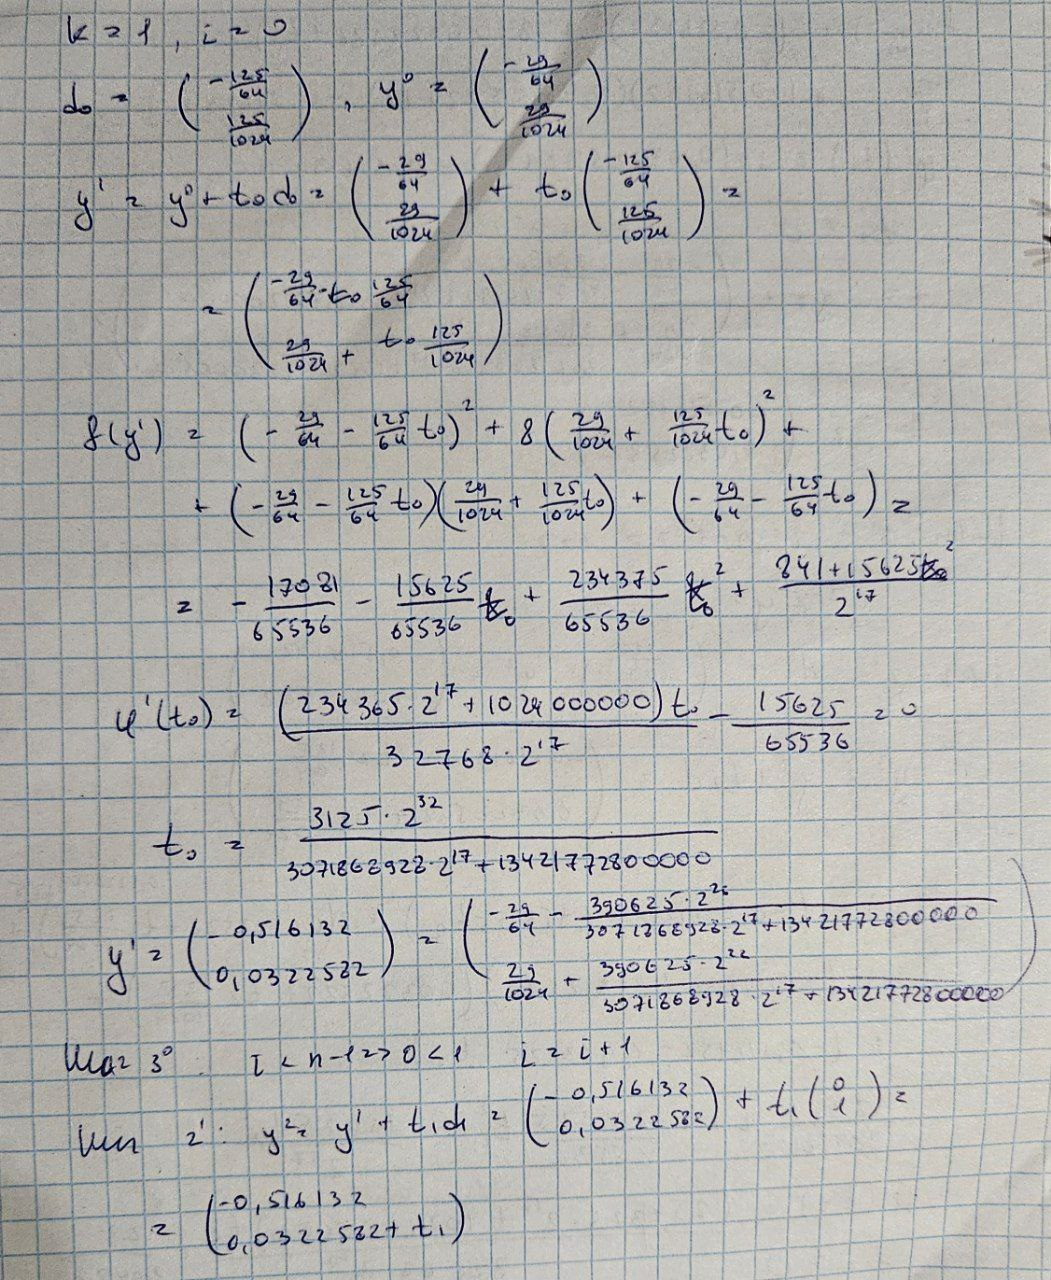 k = 1, i = 0
d₀ = (-125/64; 125/1024), y⁰ = (-29/64; 29/1024)
y¹ = y⁰ + t₀d₀ = (-29/64; 29/1024) + t₀(-125/64; 125/1024) =
= (-29/64 - t₀ 125/64; 29/1024 + t₀ 125/1024)
f(y¹) = (-29/64 - 125/64 t₀)² + 8(29/1024 + 125/1024 t₀)² +
+ (-29/64 - 125/64 t₀)(29/1024 + 125/1024 t₀) + (-29/64 - 125/64 t₀) =
= - 17081/65536 - 15625/65536 t₀ + 234375/65536 t₀² + 841+15625t₀²/2¹⁷
φ'(t₀) = (234365·2¹⁷ + 1024000000)t₀/32768·2¹⁷ - 15625/65536 = 0
t₀ = 3125·2³²/3071868928·2¹⁷+13421772800000
y¹ = (-0,516132; 0,0322582) = (-29/64 - 390625·2²⁶/3071868928·2¹⁷+13421772800000; 29/1024 + 390625·2²²/3071868928·2¹⁷+13421772800000)
Шаг 3⁰: i < n-1 => 0 < 1 i = i + 1
Шаг 2¹: y² = y¹ + t₁d₁ = (-0,516132; 0,0322582) + t₁(0; 1) =
= (-0,516132; 0,0322582 + t₁)